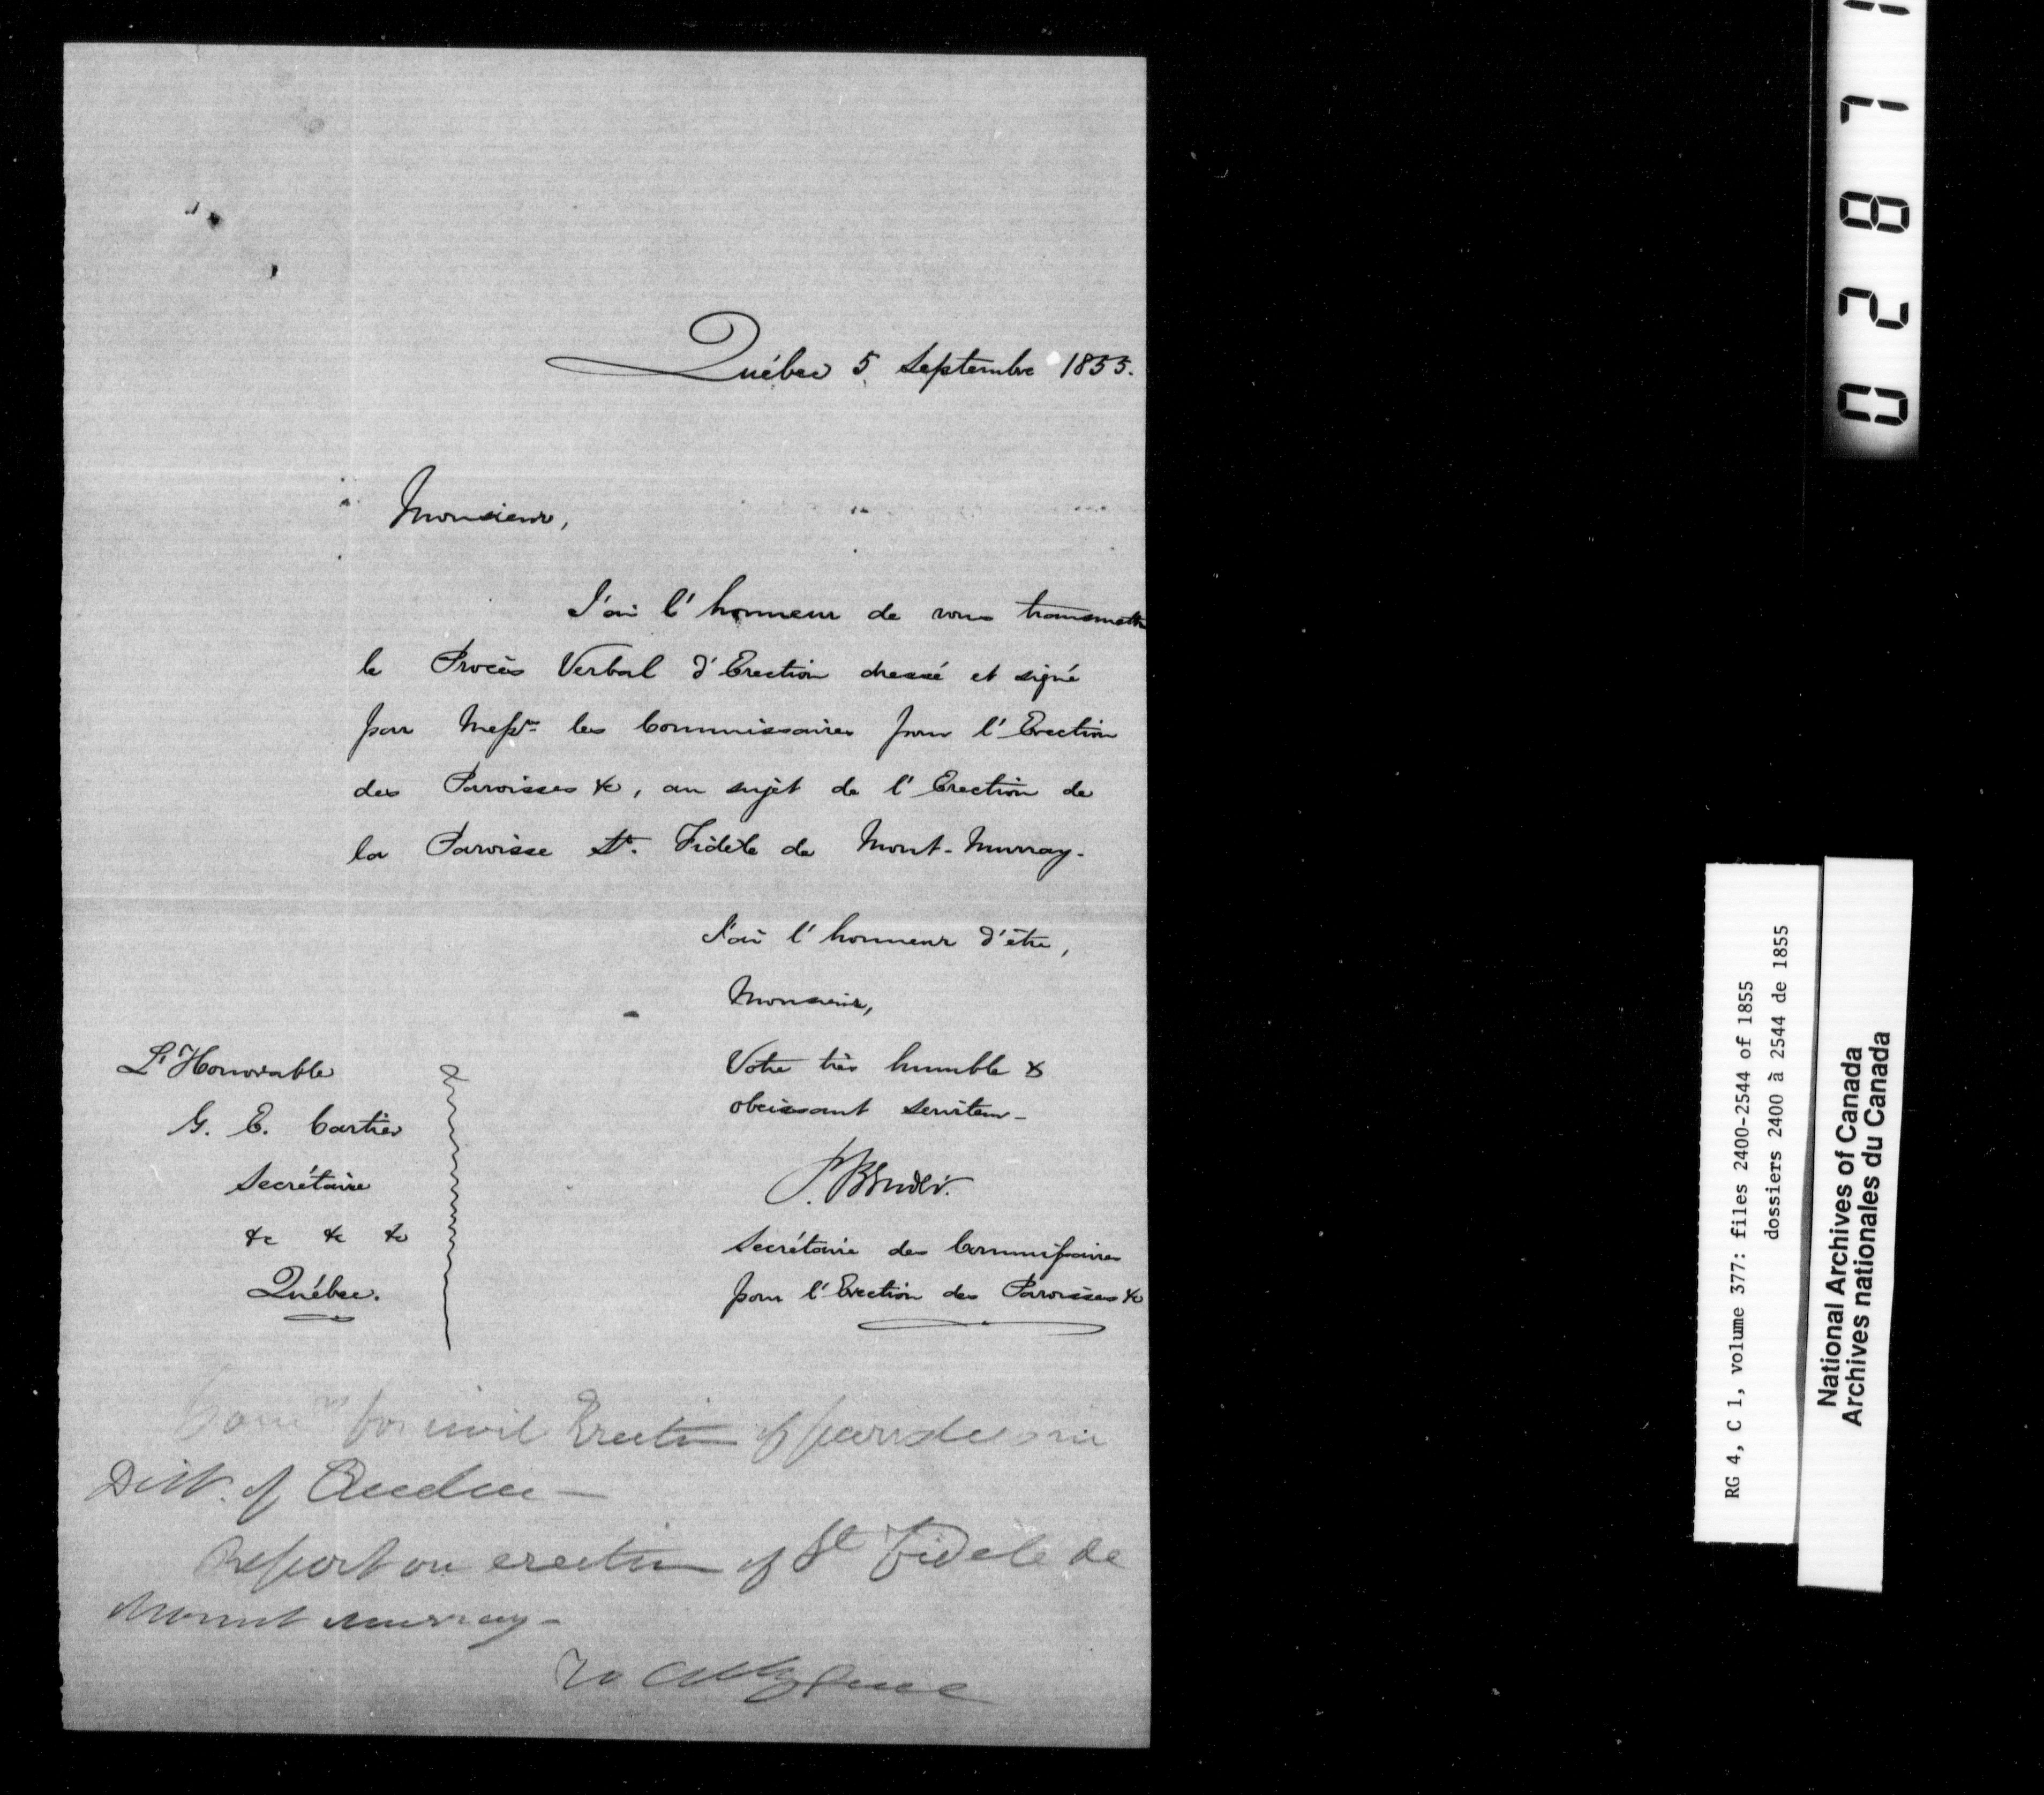 Québec 5 Septembre 1855.
Monsieur,
J'ai l'honneur de vous transmettre
le Procès Verbal d'Erection dressé et signé
par Messrs les Commissaires pour l'Erection
des Paroisses &c, au sujet de l'Erection de
la Paroisse St. Fidèle de Mont-Murray.
J'ai l'honneur d'être,
Monsieur,
Votre très humble &
obeissant serviteur
Secrétaire des Commissaires
pour l'Erection des Paroisses &c
L'Honorable
G. E. Cartier
Secrétaire
&c &c &c
Québec.
Comrs for civil Erection of parishes in
Dist. of Quebec —
Report on erection of St Fidèle de
Mount Murray -
To Atty Genl
0 2 8 7 1
RG 4, C 1, volume 377: files 2400-2544 of 1855
dossiers 2400 à 2544 de 1855
National Archives of Canada
Archives nationales du Canada